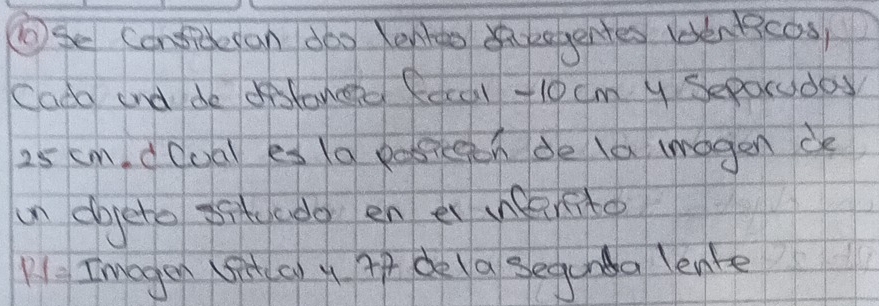 10) Se Consideran dos lentes divergentes identicos,
Cada und de distancia focal -10 cm y Separados
25 cm. ¿Cual es la posicion de la imagen de
un objeto situado en el infinito
R/= Imagen virtual y 7,7 de la segunda lente